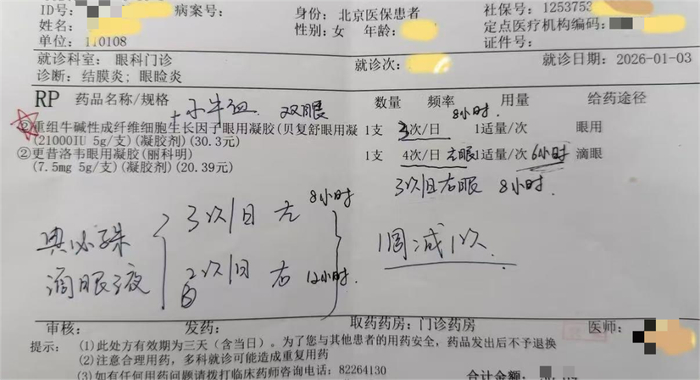 ID号: 病案号: 身份: 北京医保患者 社保号: 1253753
姓名: 性别: 女 年龄: 定点医疗机构编码:
单位: 110108 证件号:
就诊科室: 眼科门诊 就诊次: 就诊日期: 2026-01-03
诊断: 结膜炎; 眼睑炎
RP 药品名称/规格 数量 频率 用量 给药途径
+小牛血 双眼 8小时.
①重组牛碱性成纤维细胞生长因子眼用凝胶(贝复舒眼用凝 1支 3次/日 1适量/次 眼用
(21000IU 5g/支)(凝胶剂)(30.3元)
②更昔洛韦眼用凝胶(丽科明) 1支 4次/日 左眼 1适量/次 6小时 滴眼
(7.5mg 5g/支)(凝胶剂)(20.39元)
3次/日右眼 8小时.
典必殊 3次/日 左 8小时
滴眼液 2次/日 右 12小时.
1周减1次
审核: 发药: 取药药房: 门诊药房 医师:
提示: (1)此处方有效期为三天(含当日)。为了您与其他患者的用药安全，药品发出后不予退换
(2)注意合理用药，多科就诊可能造成重复用药
(3)如有任何用药问题请拨打临床药师咨询电话: 82264130
合计金额: